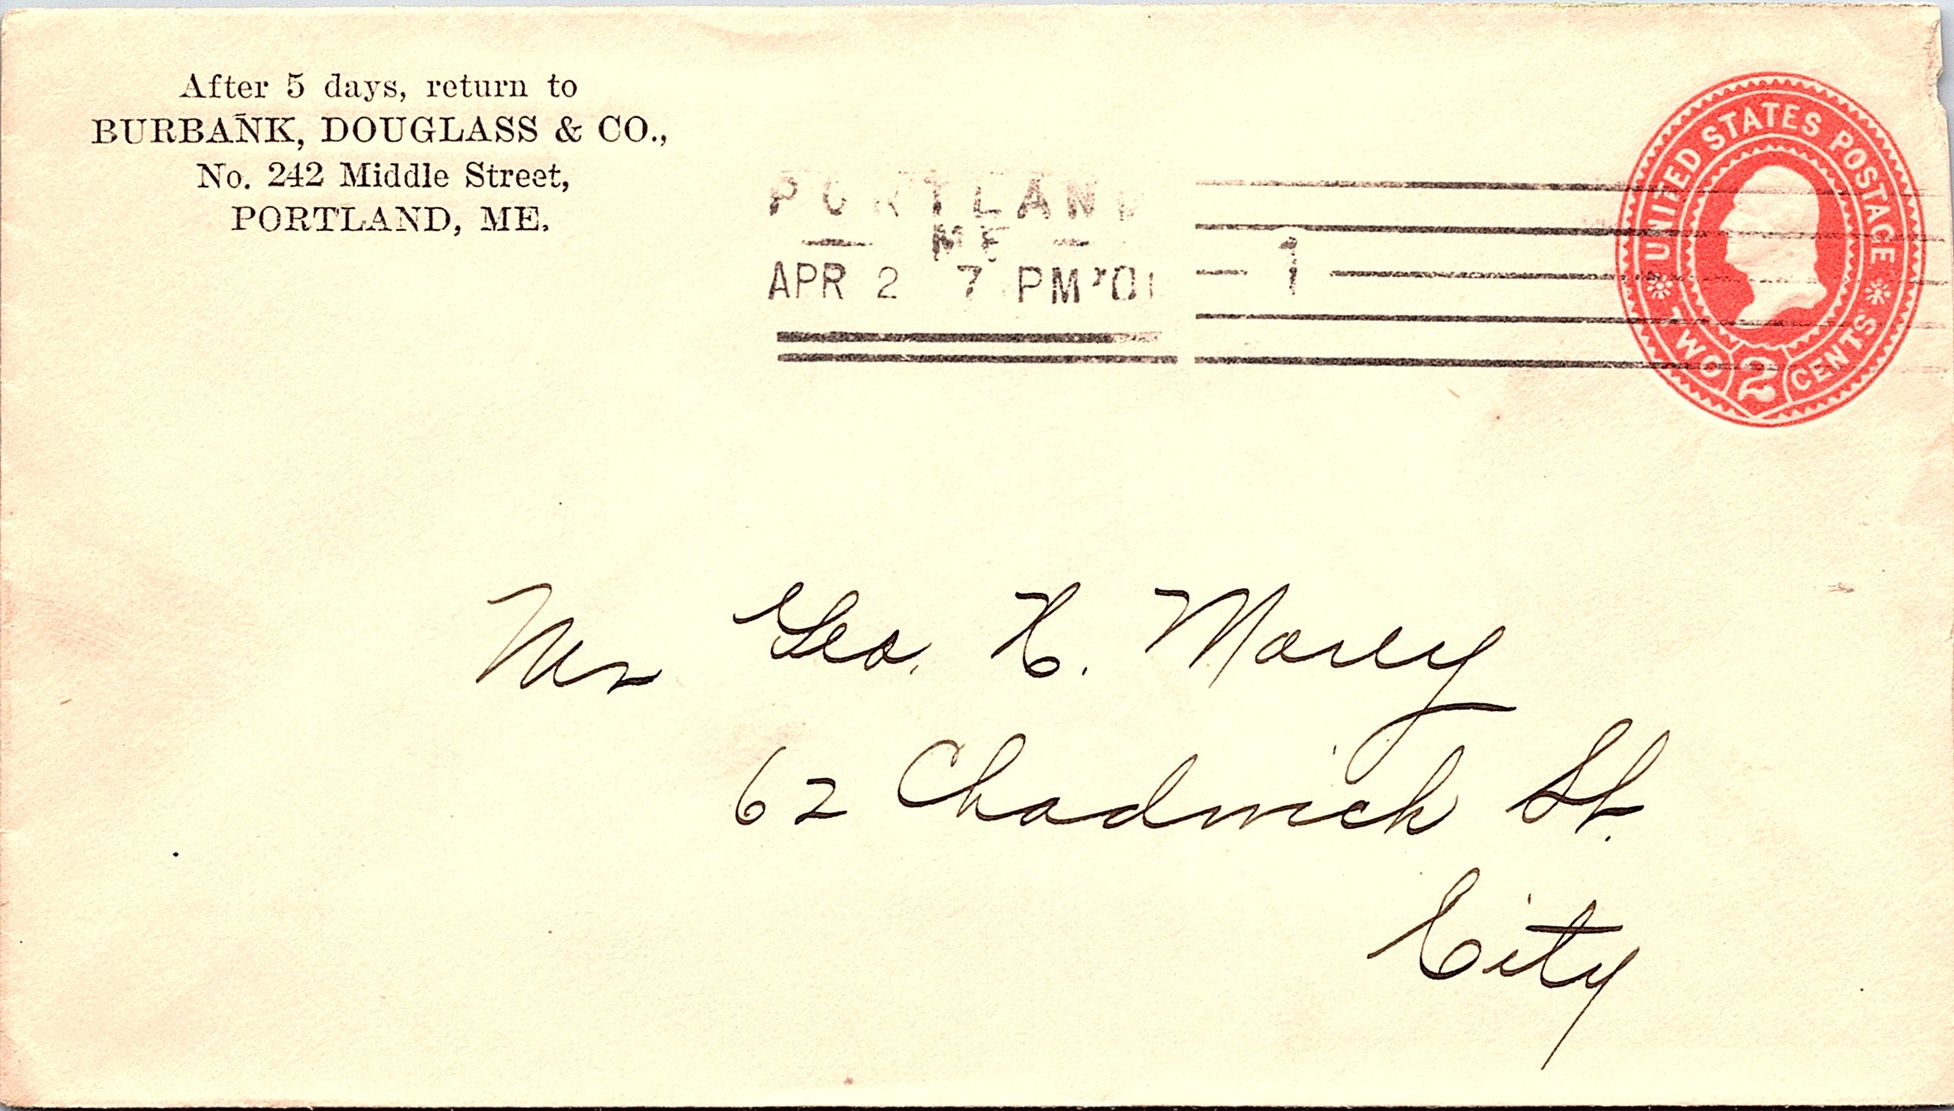 After 5 days, return to
BURBANK, DOUGLASS & CO.,
No. 242 Middle Street,
PORTLAND, ME.
PORTLAND
ME
APR 2 7 PM '01
1
UNITED STATES POSTAGE
TWO 2 CENTS
Mr Geo. H. Morey
62 Chadwick St.
City